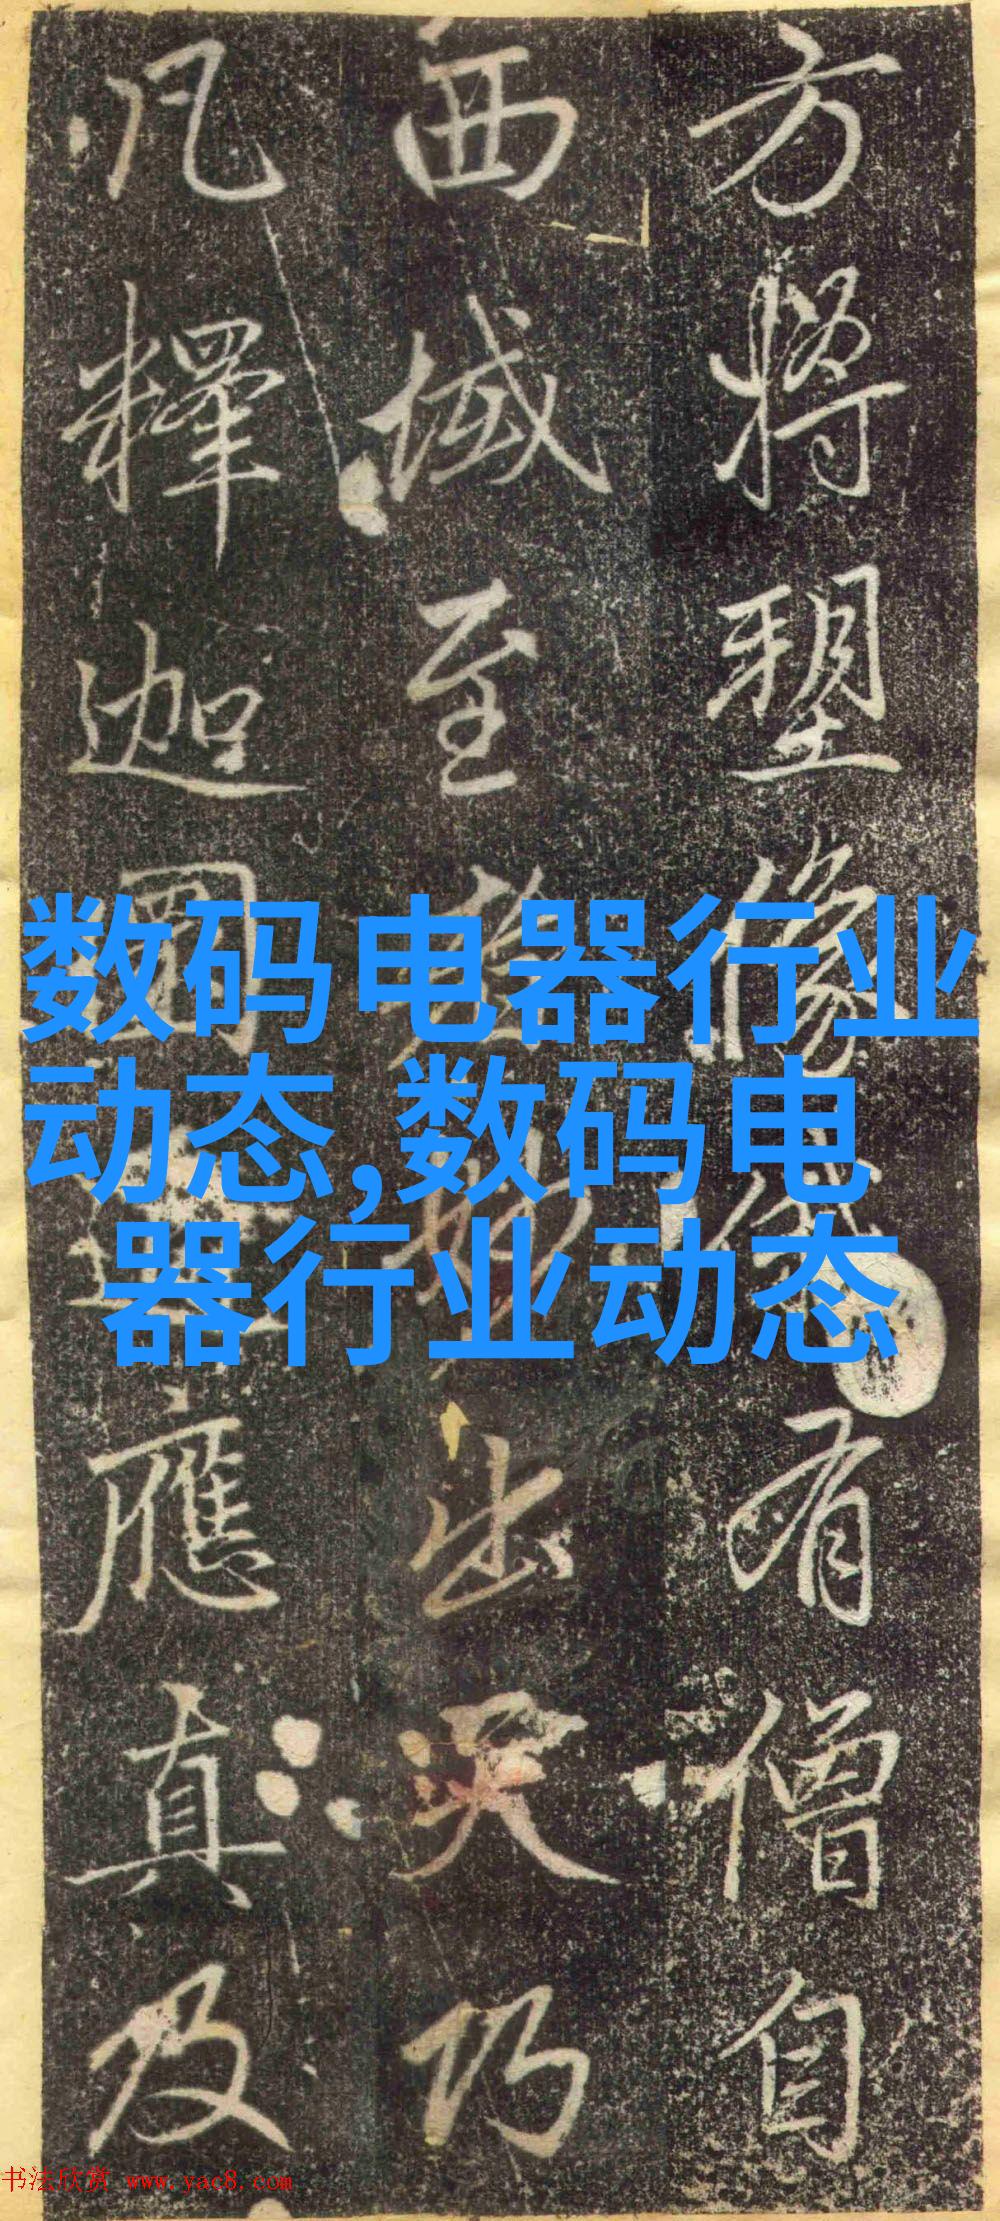 方將塑像有僧自
西域至出天巧
凡釋迦應真及
数码电器行业
动态,数码电
器行业动态
书法欣赏 www.yac8.com